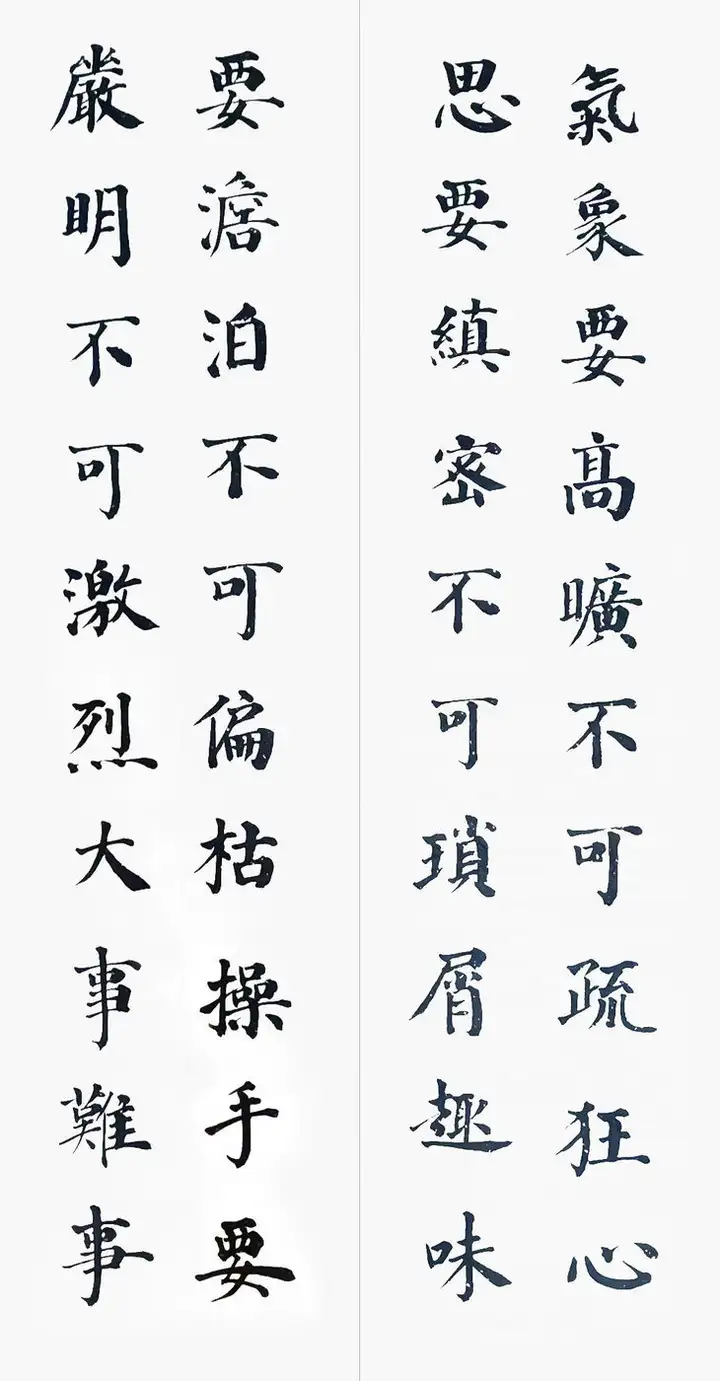 氣象要高曠不可疏狂心
思要縝密不可瑣屑趣味
要澹泊不可偏枯操手要
嚴明不可激烈大事難事